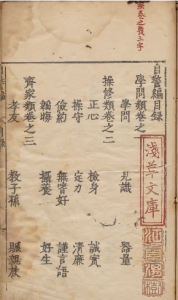 自警編目録
學問類卷之一
學問 見識 器量
操修類卷之二
正心 檢身 誠實
操守 定力 清廉
儉約 無嗜好 謹言語
韜晦 攝養 好生
齊家類卷之三
孝友 教子孫
淺草文庫